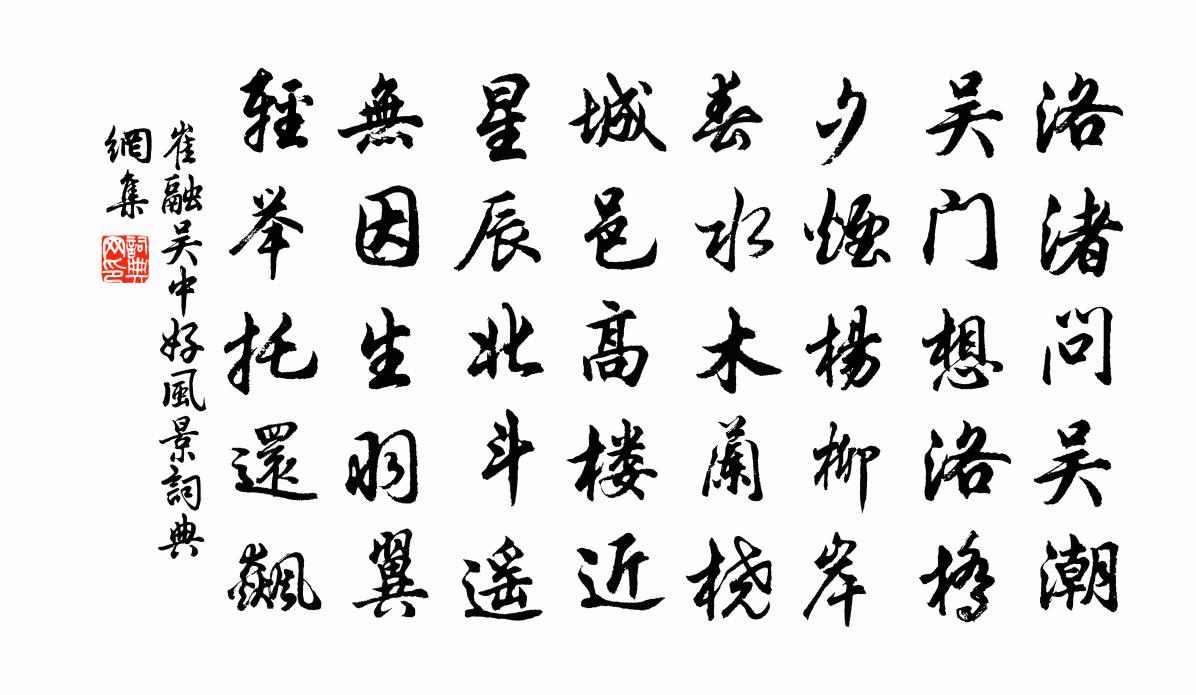 洛渚问吴潮
吴门想洛橋
夕煙楊柳岸
春水木蘭桡
城邑高楼近
星辰北斗遥
無因生羽翼
輕举托還飆
崔融吴中好風景詞典
網集
詞典網印